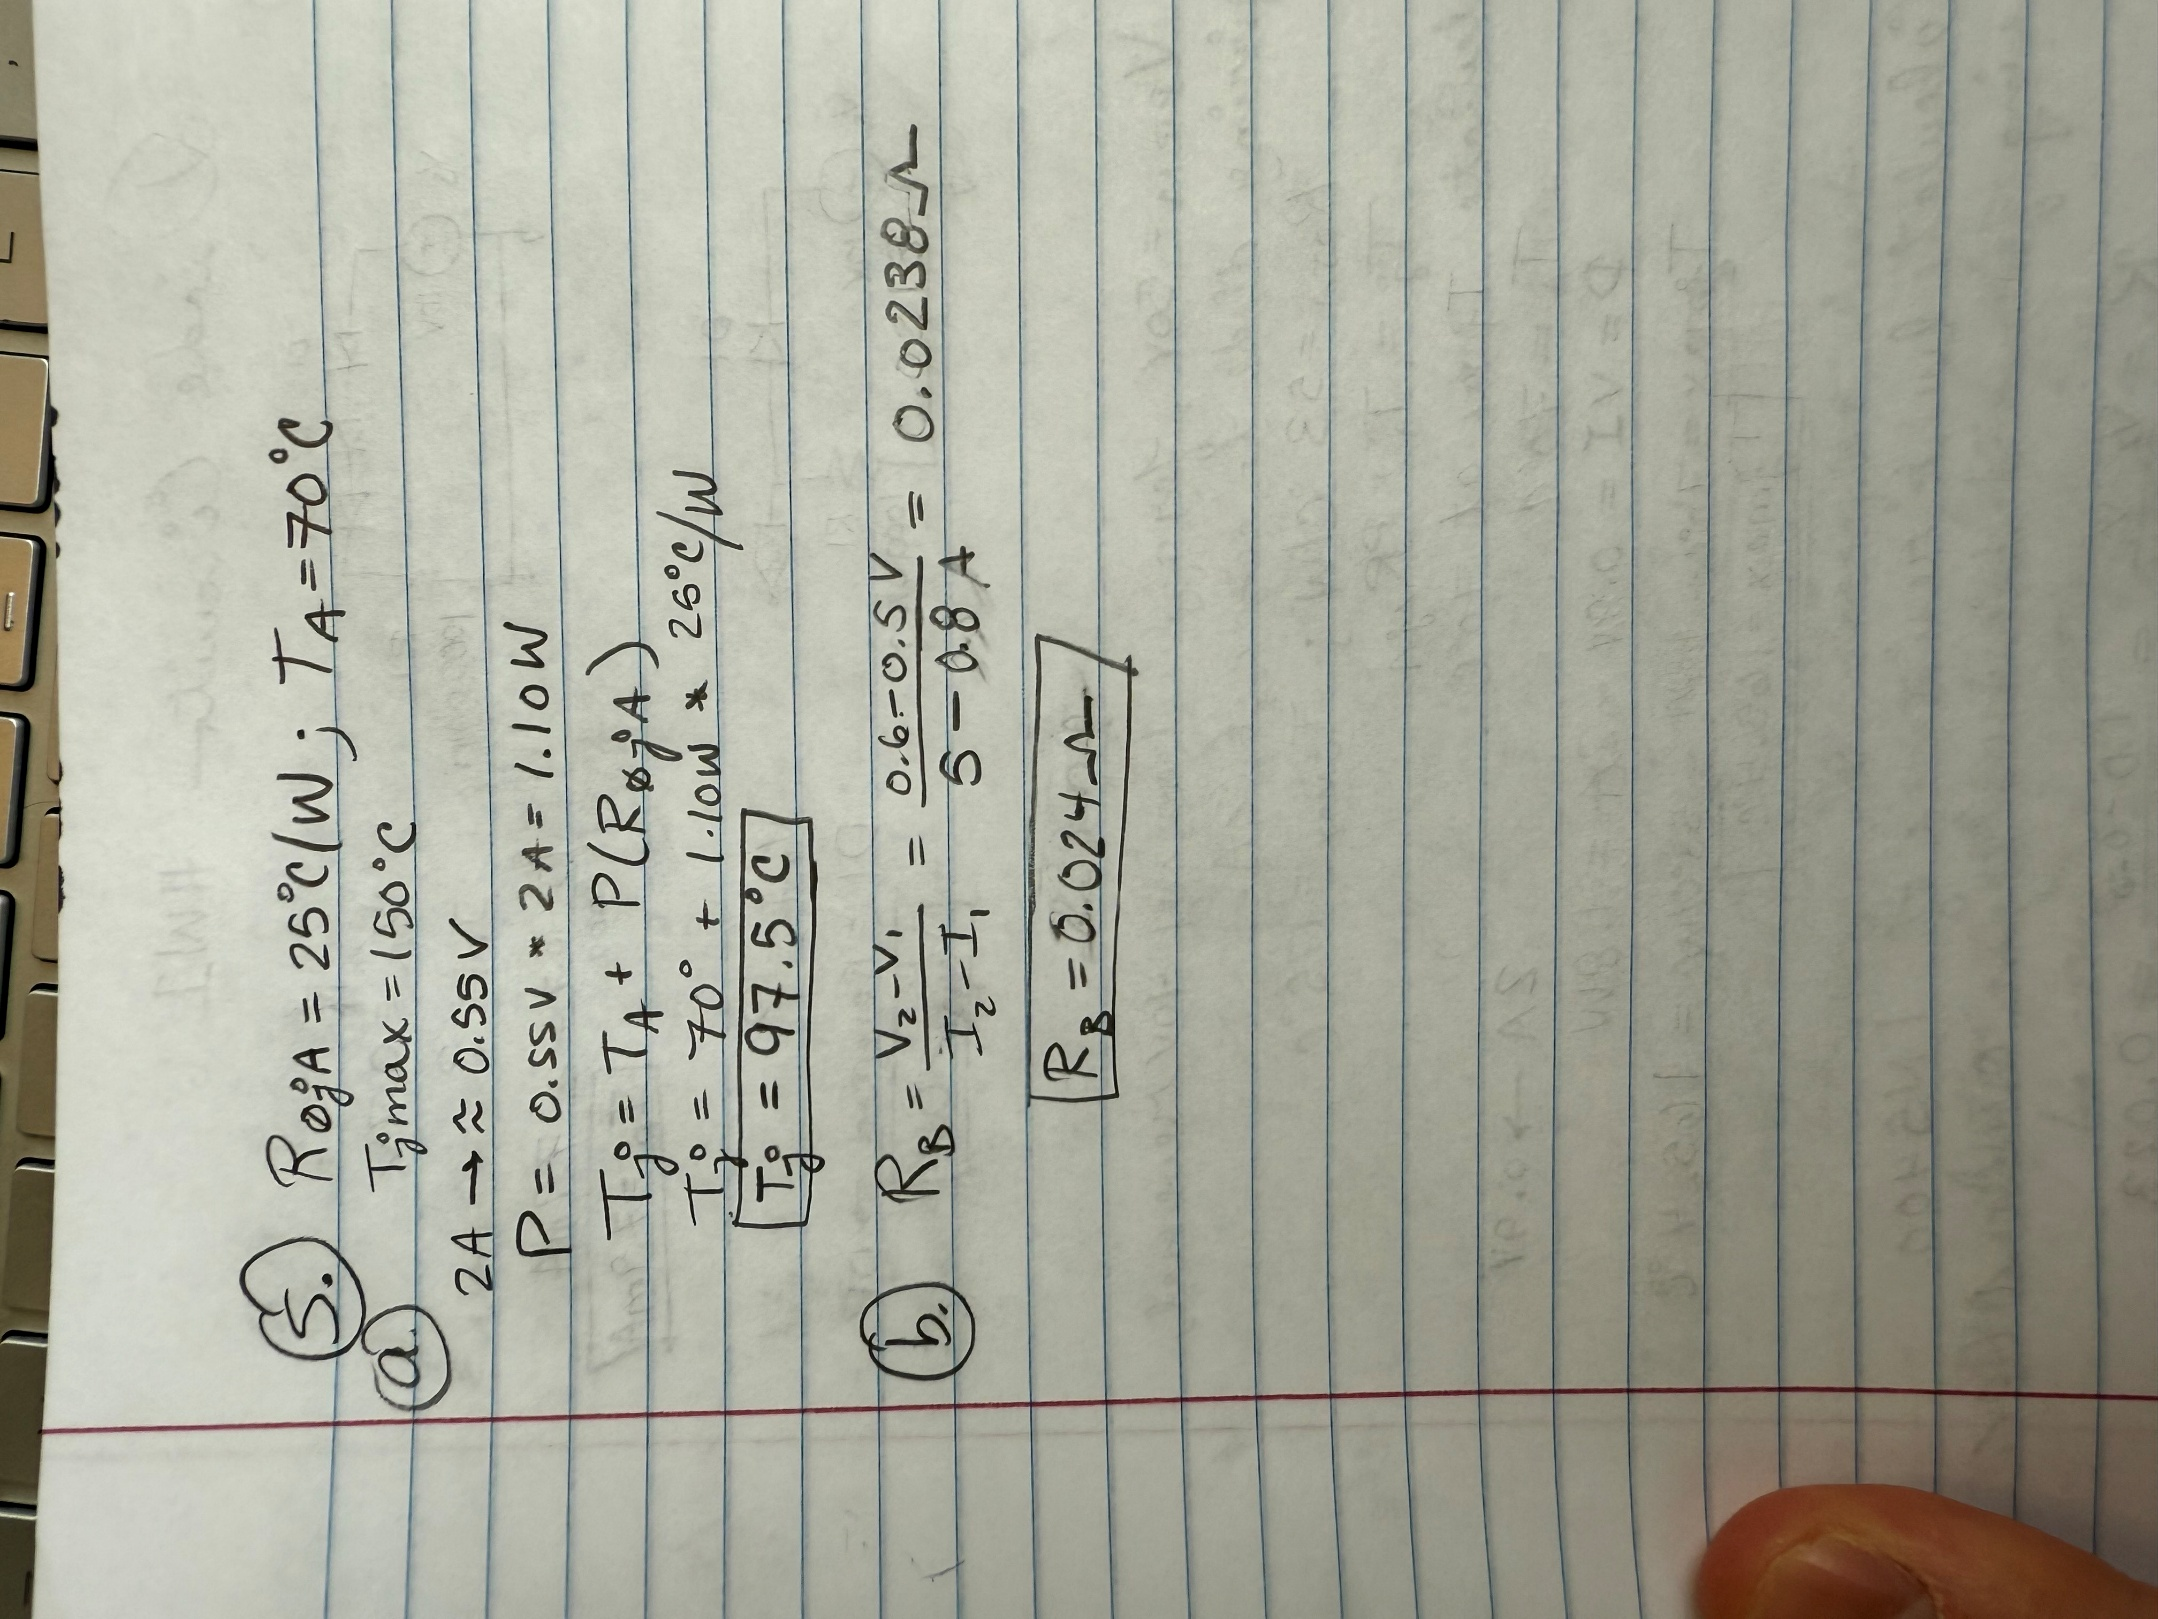 5. RθjA = 25°C/W; TA = 70°C
a. Tjmax = 150°C
2A → ≈ 0.55V
P = 0.55V * 2A = 1.10W
Tj = TA + P(RθjA)
Tj = 70° + 1.10W * 25°C/W
Tj = 97.5°C
b. RB = V2-V1 / I2-I1 = 0.6-0.5V / 5-0.8A = 0.0238Ω
RB = 0.024Ω